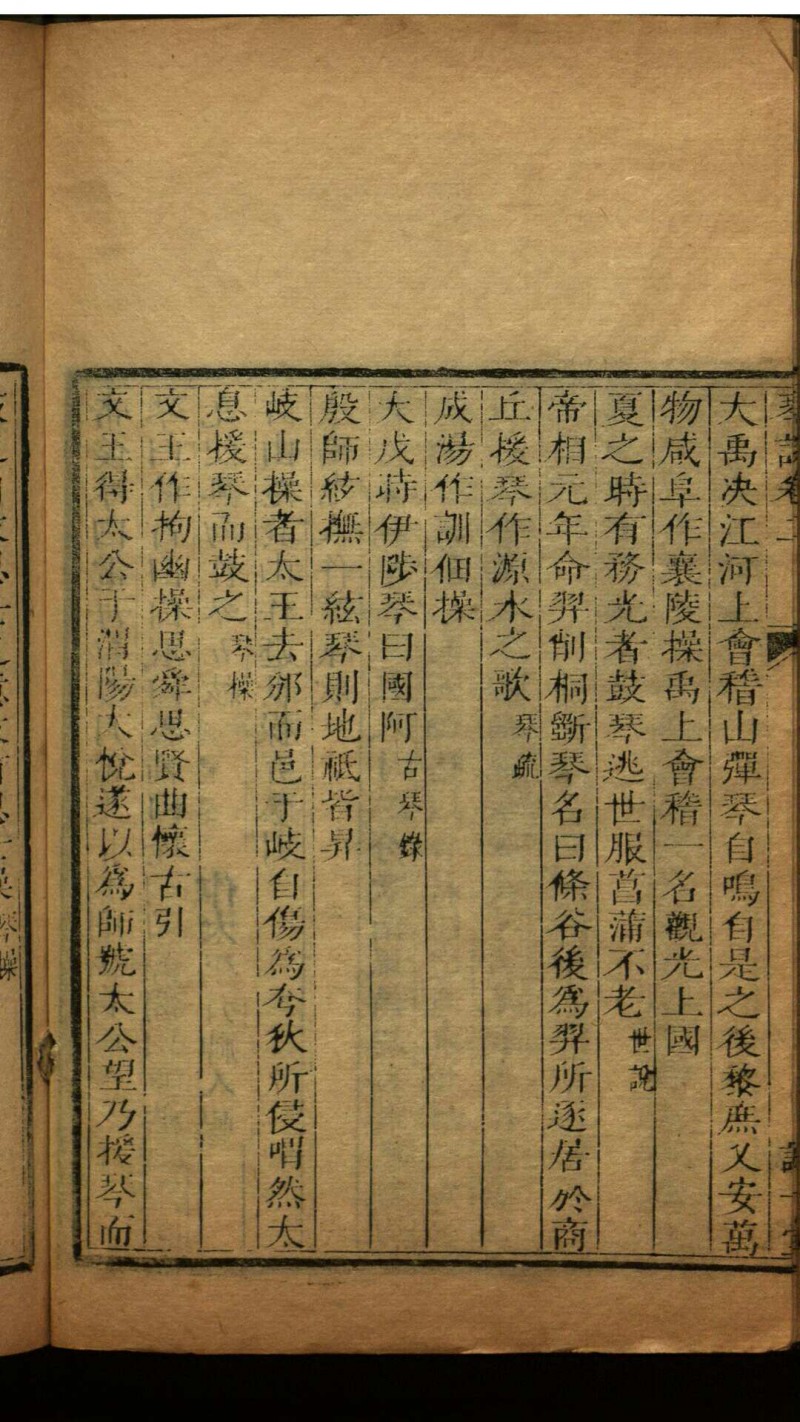 大禹决江河上會稽山彈琴自鳴自是之後黎庶乂安萬
物咸阜作襄陵操禹上會稽一名觀光上國
夏之時有務光者鼓琴逃世服菖蒲不老世說
帝相元年命羿削桐斵琴名曰條谷後爲羿所逐居於商
丘援琴作源水之歌琴疏
成湯作訓佃操
大戊時伊陟琴曰國阿古琴錄
殷師紋撫一絃琴則地祇皆昇
岐山操者太王去邠而邑于岐自傷爲夸狄所侵喟然太
息援琴而鼓之琴操
文王作拘幽操思舜思賢曲懷古引
文王得太公于渭陽大悅遂以爲師號太公望乃援琴而